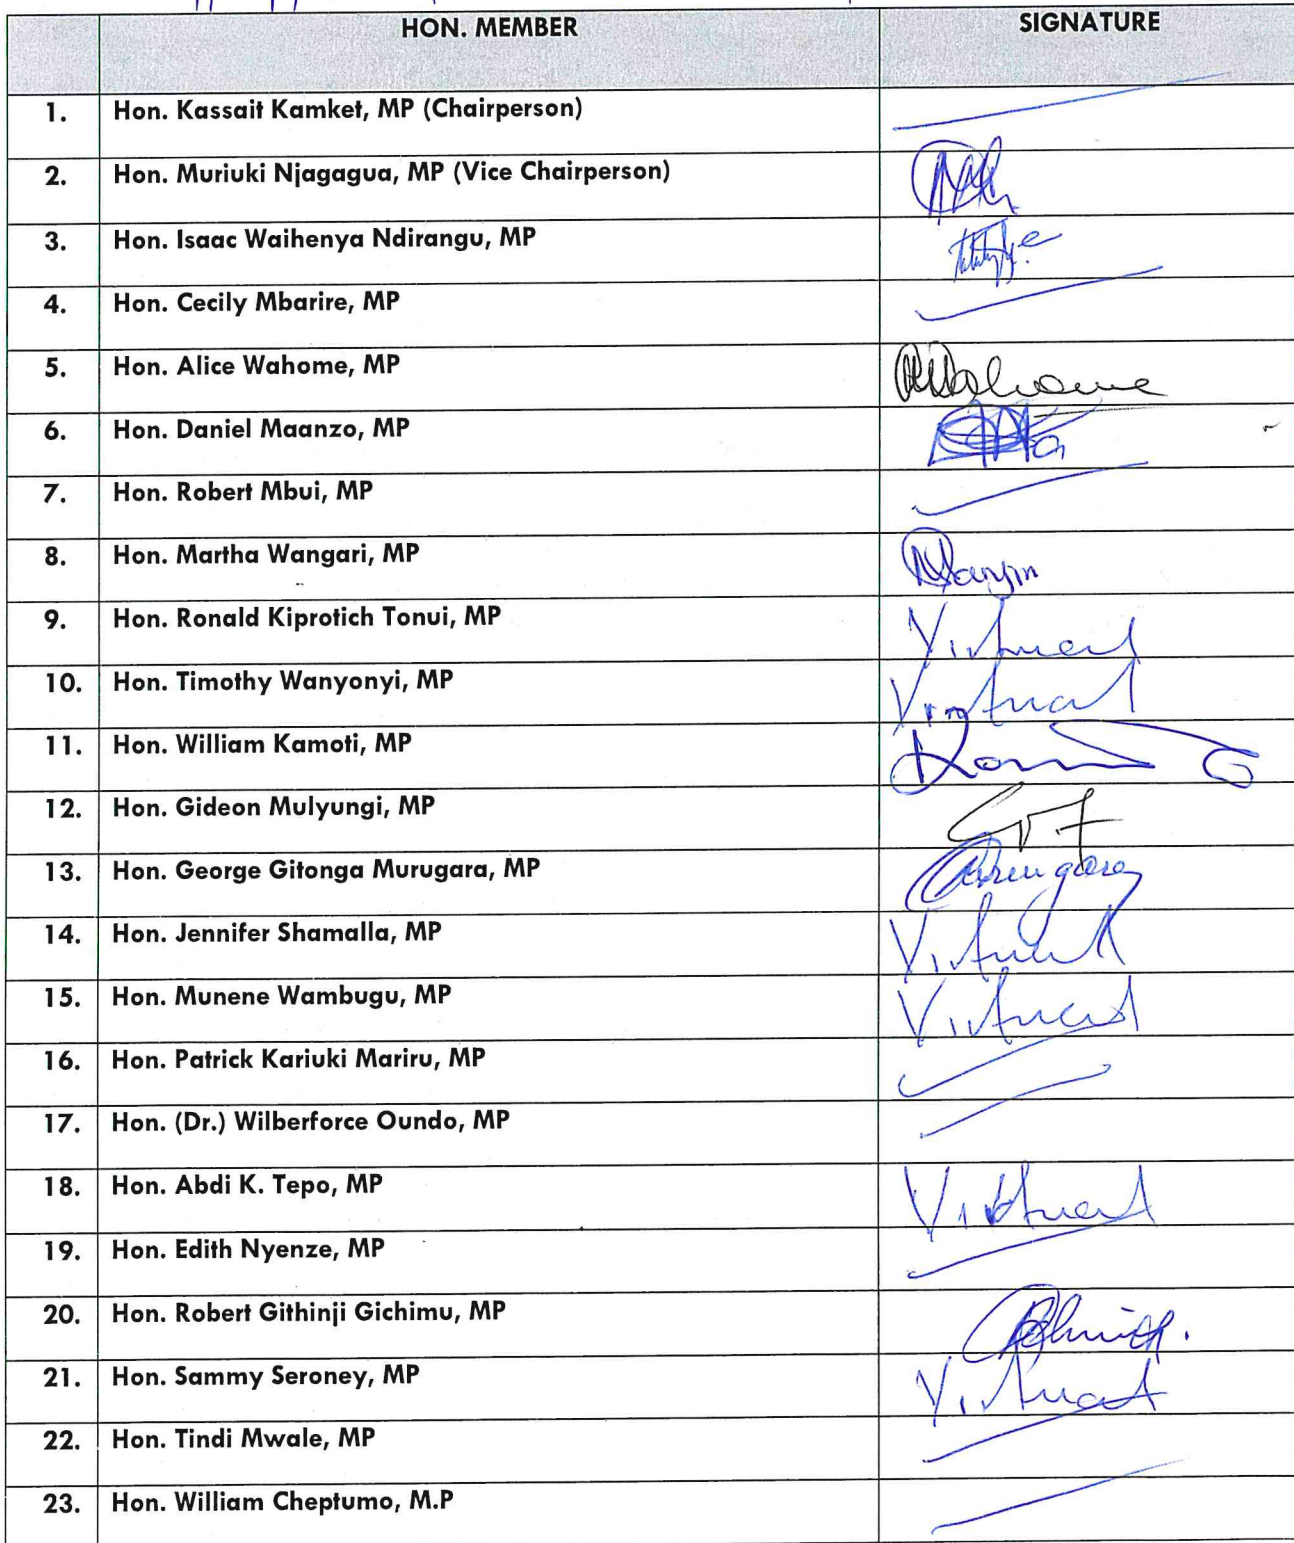 HON. MEMBER SIGNATURE
1. Hon. Kassait Kamket, MP (Chairperson)
2. Hon. Muriuki Njagagua, MP (Vice Chairperson)
3. Hon. Isaac Waihenya Ndirangu, MP
4. Hon. Cecily Mbarire, MP
5. Hon. Alice Wahome, MP
6. Hon. Daniel Maanzo, MP
7. Hon. Robert Mbui, MP
8. Hon. Martha Wangari, MP
9. Hon. Ronald Kiprotich Tonui, MP Virtual
10. Hon. Timothy Wanyonyi, MP Virtual
11. Hon. William Kamoti, MP
12. Hon. Gideon Mulyungi, MP
13. Hon. George Gitonga Murugara, MP
14. Hon. Jennifer Shamalla, MP Virtual
15. Hon. Munene Wambugu, MP Virtual
16. Hon. Patrick Kariuki Mariru, MP
17. Hon. (Dr.) Wilberforce Oundo, MP
18. Hon. Abdi K. Tepo, MP Virtual
19. Hon. Edith Nyenze, MP
20. Hon. Robert Githinji Gichimu, MP
21. Hon. Sammy Seroney, MP Virtual
22. Hon. Tindi Mwale, MP
23. Hon. William Cheptumo, M.P